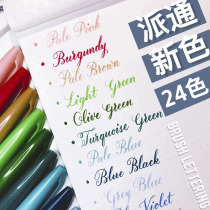 Pale Pink
Burgundy
Pale Brown
Light Green
Olive Green
Turquoise Green
Pale Blue
Blue Black
Grey Blue
Violet
派通
新色
24色
BRUSH LETTERING